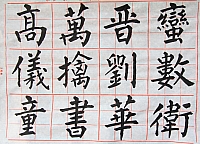 高萬晋蠻
儀擒劉數
童書華衛